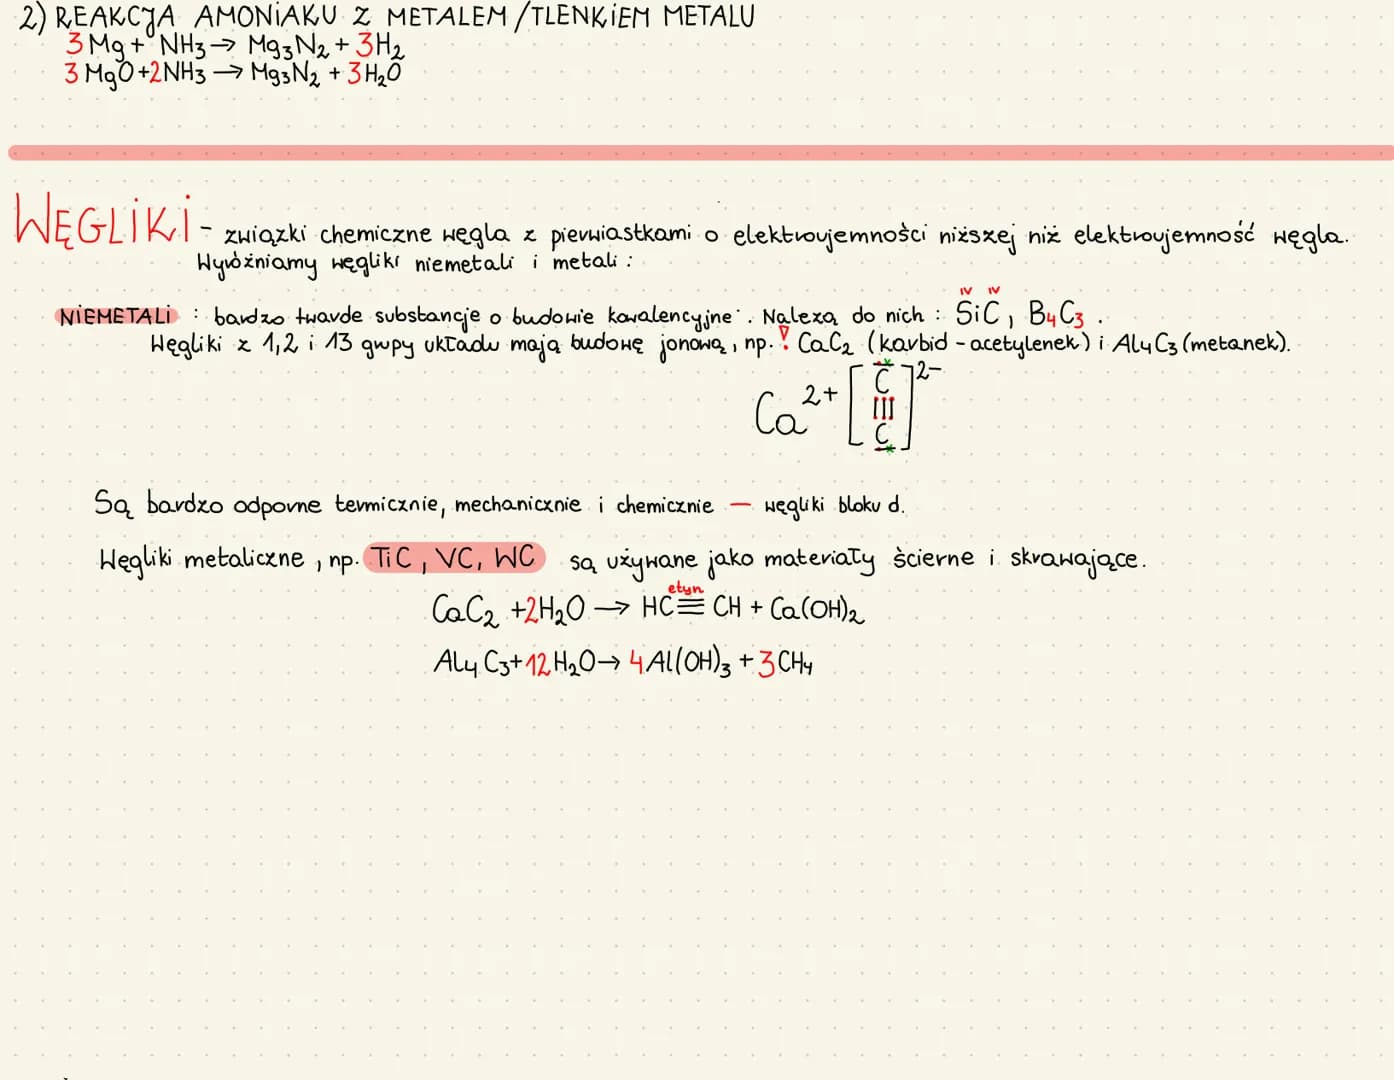 2) REAKCJA AMONIAKU Z METALEM/TLENKIEM METALU
3Mg + NH3 → Mg3N2 + 3H2
3MgO + 2NH3 → Mg3N2 + 3H2O
WĘGLIKI - związki chemiczne węgla z pierwiastkami o elektroujemności niższej niż elektroujemność węgla.
Wyróżniamy węgliki niemetali i metali :
IV IV
NIEMETALI : bardzo twarde substancje o budowie kowalencyjne. Należą do nich : SiC, B4C3.
Węgliki z 1,2 i 13 grupy układu mają budowę jonową, np. ! CaC2 (karbid - acetylenek) i Al4C3 (metanek).
Ca2+ [C≡C]2-
Są bardzo odporne termicznie, mechanicznie i chemicznie — węgliki bloku d.
Węgliki metaliczne, np. TiC, VC, WC są używane jako materiały ścierne i skrawające.
etyn
CaC2 + 2H2O → HC≡CH + Ca(OH)2
Al4C3 + 12H2O → 4Al(OH)3 + 3CH4